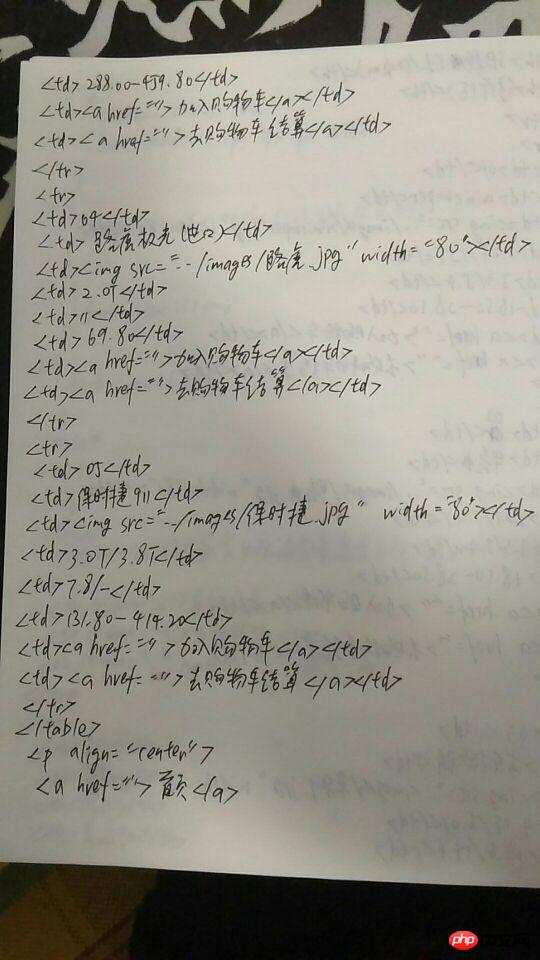 <td>288.00-459.80</td>
<td><a href="">加入购物车</a></td>
<td><a href="">去购物车结算</a></td>
</tr>
<tr>
<td>04</td>
<td>路虎极光(进口)</td>
<td><img src="../images/路虎.jpg" width="80"></td>
<td>2.0T</td>
<td>11</td>
<td>69.80</td>
<td><a href="">加入购物车</a></td>
<td><a href="">去购物车结算</a></td>
</tr>
<tr>
<td>05</td>
<td>保时捷911</td>
<td><img src="../images/保时捷.jpg" width="80"></td>
<td>3.0T/3.8T</td>
<td>7.8/-</td>
<td>131.80-414.20</td>
<td><a href="">加入购物车</a></td>
<td><a href="">去购物车结算</a></td>
</tr>
</table>
<p align="center">
<a href="">首页</a>
php